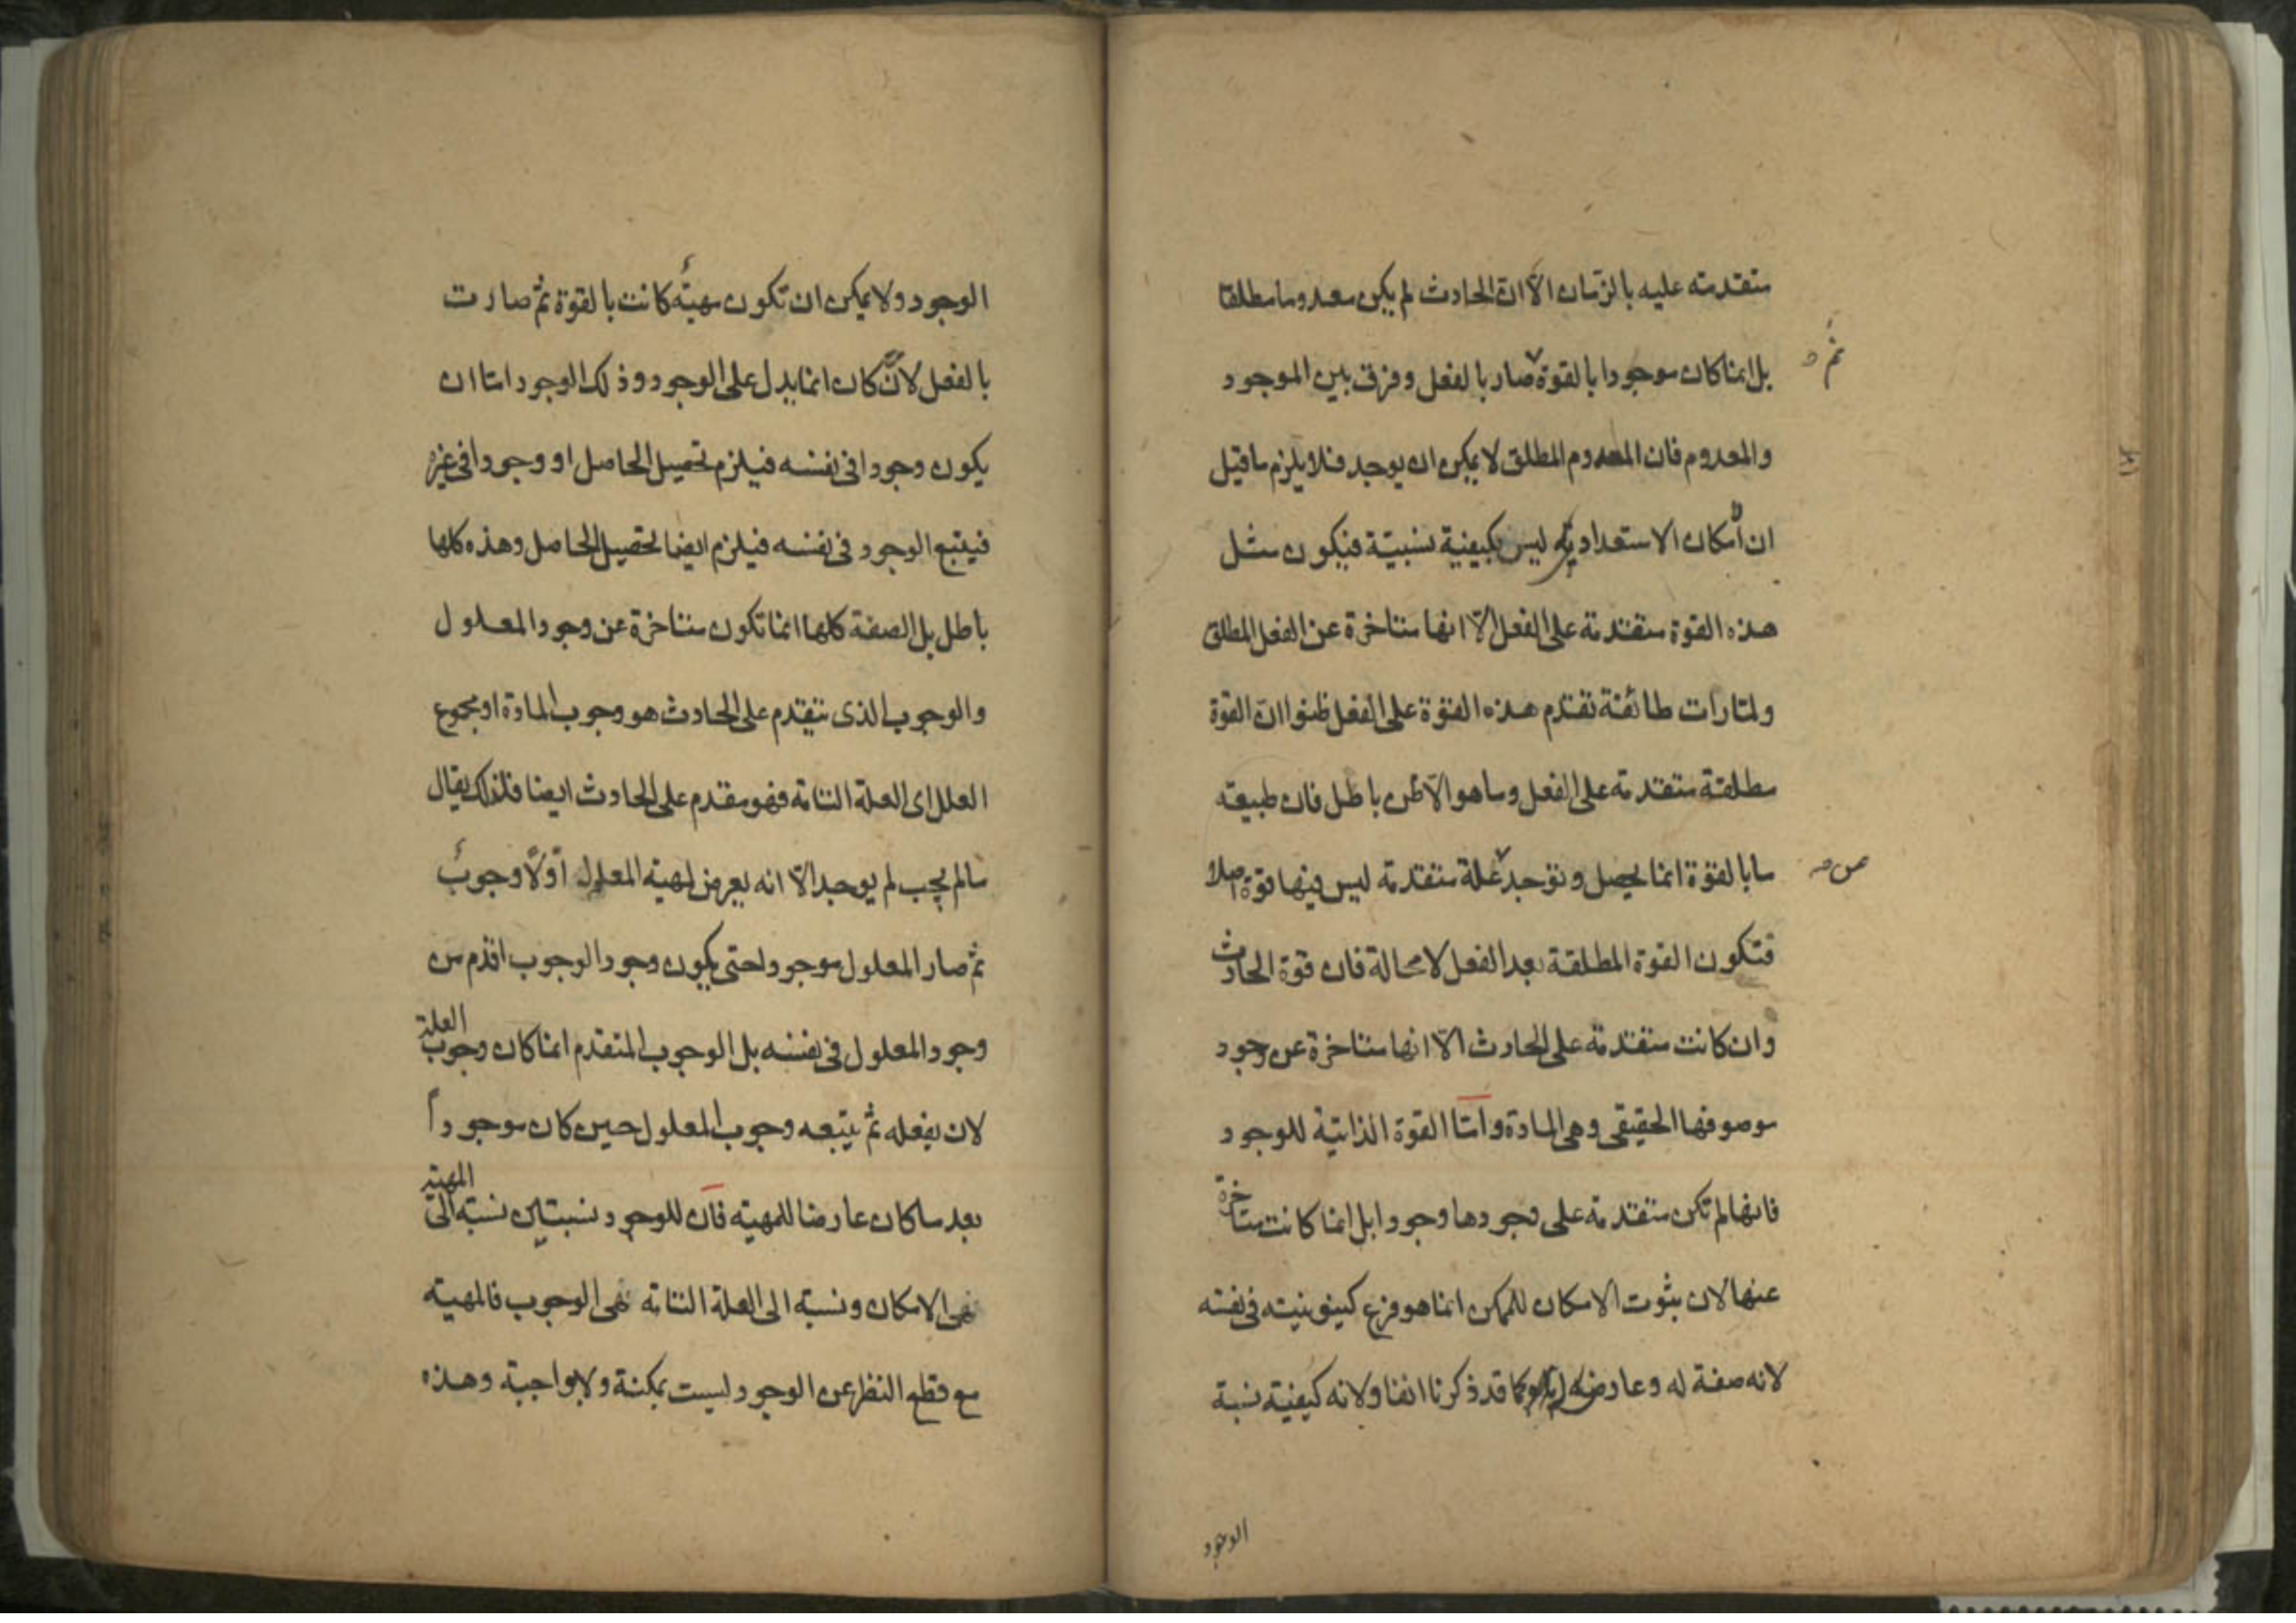 متقدمته عليه بالزمان الّا انّ الحادث لم يكن معدوما مطلقا
بل انما كان موجودا بالقوة صار بالفعل وفرق بين الموجود
ثمّ
والمعدوم فان المعدوم المطلق لا يمكن ان يوجد فلا يلزم ما قيل
ان امكان الاستعداديه ليس بكيفية نسبيّة فيكون مثل
هذه القوة متقدمة على الفعل الّا انها متاخرة عن الفعل المطلق
ولمّا رات طائفة تقدّم هذه القوة على الفعل ظنوا انّ القوة
مطلقة متقدمة على الفعل وما هو الّا ظن باطل فان طبيعته
ما بالقوة انما يحصل وتوجد علة متقدمته ليس فيها قوة اصلا
من
فتكون القوة المطلقة بعد الفعل لا محالة فان قوة الحادث
وان كانت متقدمة على الحادث الّا انها متاخرة عن وجود
موصوفها الحقيقى وهى المادة وامّا القوة الذاتية للوجود
فانها لم تكن متقدمة على وجودها وجودا بل انما كانت متاخرة
عنها لان ثبوت الامكان للممكن انما هو فرع كينونيته فى نفسه
لانه صفة له وعارضه كما قد ذكرنا انفا ولانه كيفية نسبة
الوجود
الوجود ولا يمكن ان تكون مهيّة كانت بالقوة ثمّ صارت
بالفعل لانّ كان انما يدل على الوجود وذلك الوجود امّا ان
يكون وجودا فى نفسه فيلزم تحصيل الحاصل او وجودا فى غيره
فيتبع الوجود فى نفسه فيلزم ايضا تحصيل الحاصل وهذه كلها
باطل بل الصفة كلها انما تكون متاخرة عن وجود المعلول
والوجوب الذى يتقدم على الحادث هو وجوب المادة او مجموع
العلل اى العلة التامة فهو مقدم على الحادث ايضا فلذلك يقال
ما لم يجب لم يوجد الّا انه يعرض لمهية المعلول اوّلاً وجوب
ثم صار المعلول موجود احتى يكون وجود الوجوب اقدم من
وجود المعلول فى نفسه بل الوجوب المتقدم انما كان وجوب العلة
لان يفعله ثم يتبعه وجوب المعلول حين كان موجوداً
بعد ما كان عارضا للمهية فان للوجود نسبتان نسبة الى المهية
هى الامكان ونسبة الى العلة التامة هى الوجوب فالمهية
مع قطع النظر عن الوجود ليست بمكنة ولا بواجبة وهذه